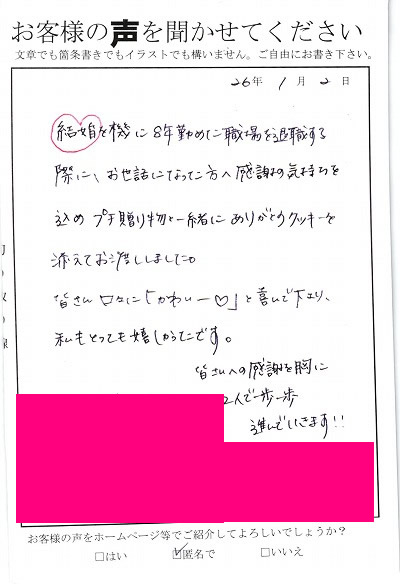 お客様の声を聞かせてください
文章でも箇条書きでもイラストでも構いません。ご自由にお書き下さい。
26年 1月 2日
結婚を機に8年勤めた職場を退職する
際に、お世話になった方へ感謝の気持ちを
込め プチ贈り物と一緒に ありがとうクッキーを
添えてお渡ししました。
皆さん 口々に「かわいー♡」と喜んで下さり、
私もとっても嬉しかったです。
皆さんへの感謝を胸に
2人で一歩一歩
進んでいきます!!
お客様の声をホームページ等でご紹介してよろしいでしょうか？
□はい ☑匿名で □いいえ